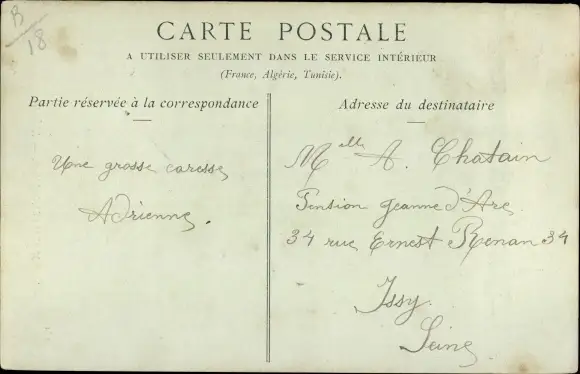 B
18
CARTE POSTALE
A UTILISER SEULEMENT DANS LE SERVICE INTÉRIEUR
(France, Algérie, Tunisie).
Partie réservée à la correspondance
Une grosse caresse
Adrienne.
Adresse du destinataire
Melle A. Chatain
Pension Jeanne d'Arc
34 rue Ernest Renan 34
Issy.
Seine